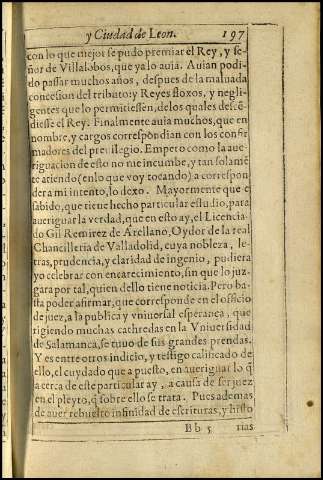 y Ciudad de Leon. 197
con lo que mejor se pudo premiar él Rey, y se-
ñor de Villalobos, que ya lo auia. Auian podi-
do passar muchos años, despues de la maluada
concesion del tributo: y Reyes floxos, y negli-
gentes que lo permitiessen, de los quales descē-
diesse el Rey. Finalmente auia muchos, que en
nombre, y cargos correspōdian con los confir
madores del preuilegio. Empero como la aue-
riguacion de esto no me incumbe, y tan solamē
te atiendo (en lo que voy tocando) a correspon
der a mi intento, lo dexo. Mayormente que e
sabido, que tiene hecho particular estudio, para
aueriguar la verdad, que en esto ay, el Licencia-
do Gil Remirez de Arellano, Oydor de la real
Chancilleria de Valladolid, cuya nobleza, le-
tras, prudencia, y claridad de ingenio, pudiera
yo celebrar con encarecimiento, sin que lo juz-
gara por tal, quien dello tiene noticia. Pero ba-
sta poder afirmar, que corresponde en el officio
de juez, a la publica y vniuersal esperança, que
rigiendo muchas cathredas en la Vniuersidad
de Salamanca, se tuuo de sus grandes prendas.
Y es entre otros indicio, y testigo calificado de
ello, el cuydado que a puesto, en aueriguar lo q̃
a cerca de este particular ay, a causa de ser juez
en el pleyto, q̃ sobre ello se trata. Pues ademas
de auer rebuelto infinidad de escrituras, y histo
Bb 5 rias